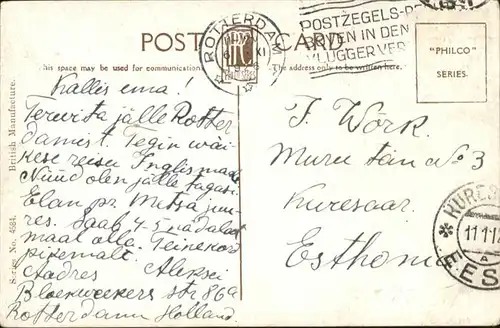 POST CARD.
This space may be used for communication
The address only to be written here.
"PHILCO"
SERIES.
ROTTERDAM
XI
POSTZEGELS
IN DEN
VLUGGER VER
British Manufacture.
Series No. 4584.
Kallis ema!
Tervita jälle Rotter
damist. Tegin wäi
kese reisu Inglismaale
Nüüd olen jälle tagasi
Elan pr. Metsa juu-
res. Saab 4-5 nädalat
maal olla. Teinekord
pikemalt.
Aadres Aleksei
Bloekweekers str 86a
Rotterdam Holland.
T. Wörk.
Muru tän No 3
Kuresaar.
Esthonia
KURES
11.1
A
EESTI